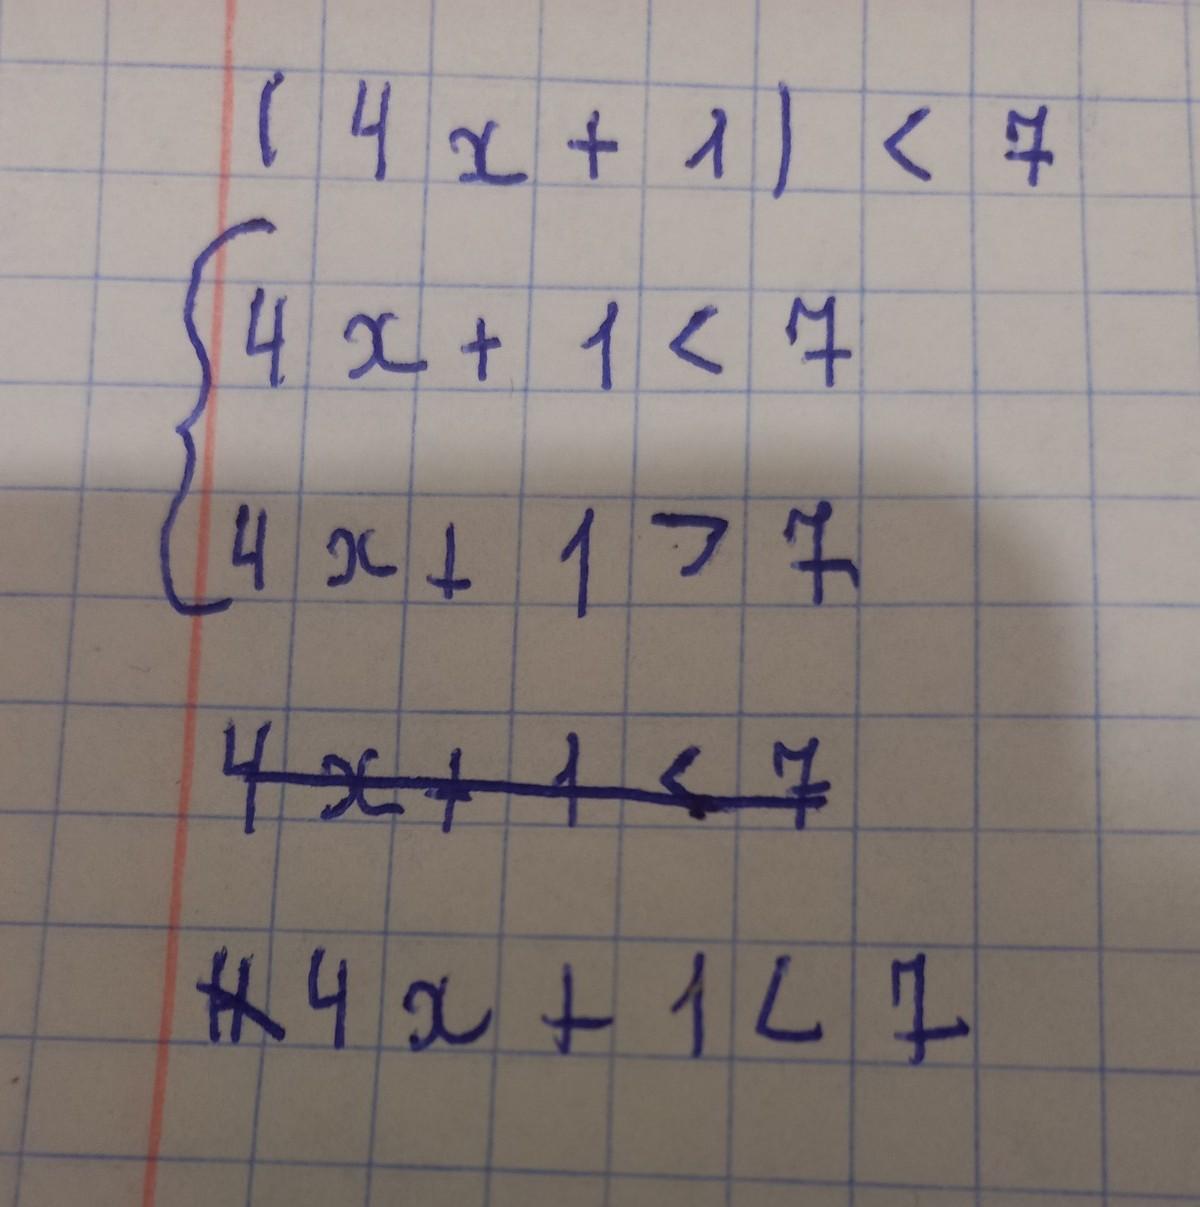 |4x+1|<7
{4x+1<7
4x+1>7
4x+1<7
4x+1<7